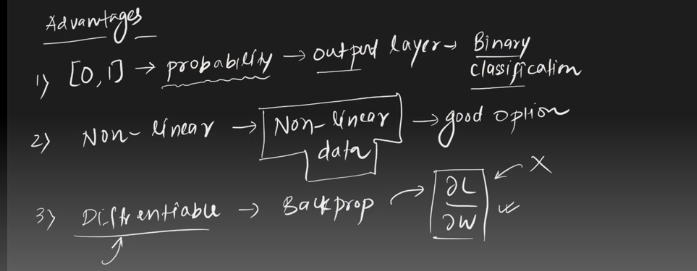 Advantages
1) [0,1] → probability → output layer → Binary
classification
2) Non-linear → Non-linear → good option
data
3) Diffrentiable → Backprop → ∂L X
∂W